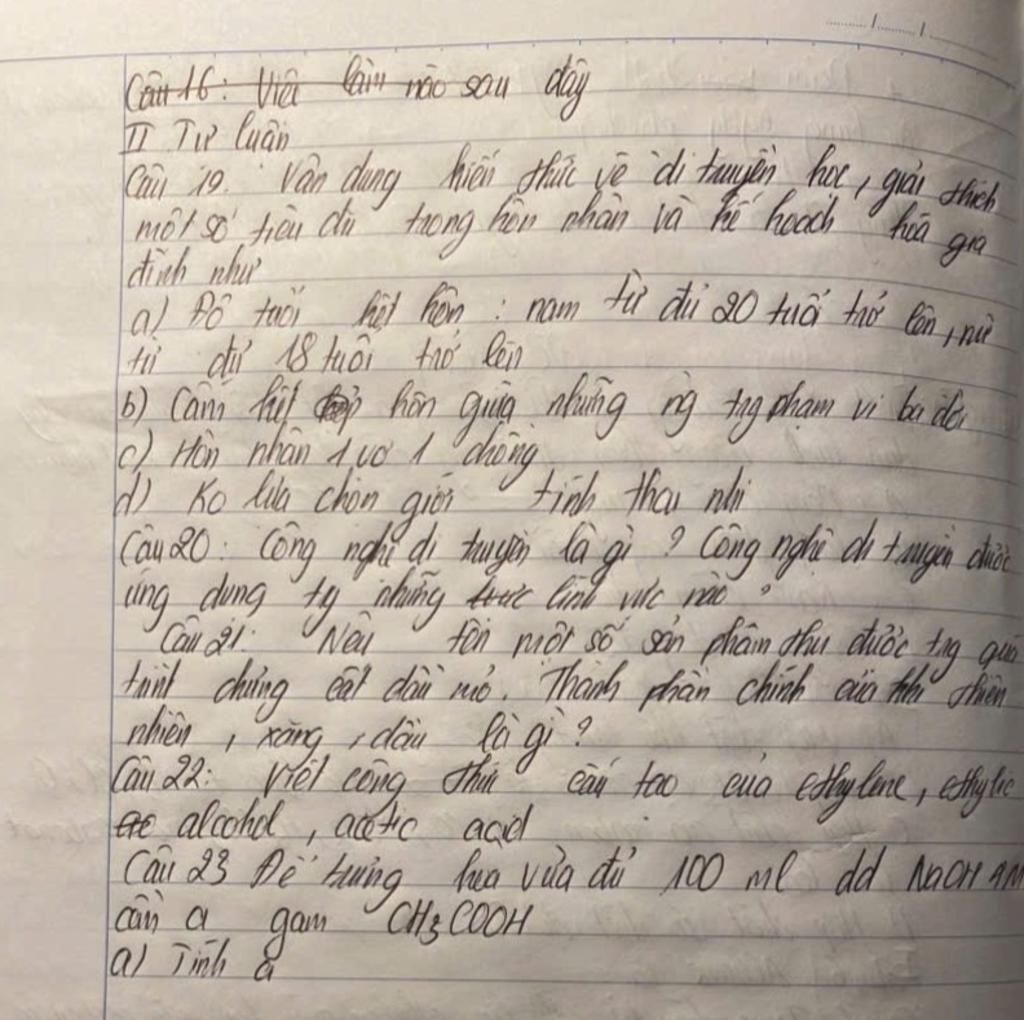 Câu 16: Việc làm nào sau đây
II Tự luận
Câu 19. Vận dụng kiến thức về di truyền học, giải thích
một số tiêu chí trong hôn nhân và kế hoạch hóa gia
đình như
a) Độ tuổi kết hôn: nam từ đủ 20 tuổi trở lên, nữ
từ đủ 18 tuổi trở lên
b) Cấm kết hôn giữa những ng trg phạm vi ba đời
c) Hôn nhân 1 vợ 1 chồng
d) Ko lựa chọn giới tính thai nhi
Câu 20: Công nghệ di truyền là gì? Công nghệ di truyền được
ứng dụng tg những lĩnh vực nào?
Câu 21: Nêu tên một số sản phẩm thu được trg quá
trình chưng cất dầu mỏ. Thành phần chính của khí thiên
nhiên, xăng, dầu là gì?
Câu 22: Viết công thức cấu tạo của ethylene, ethylic
alcohol, acetic acid
Câu 23 Để trung hòa vừa đủ 100 ml dd NaOH
cần a gam CH3COOH
a) Tính a